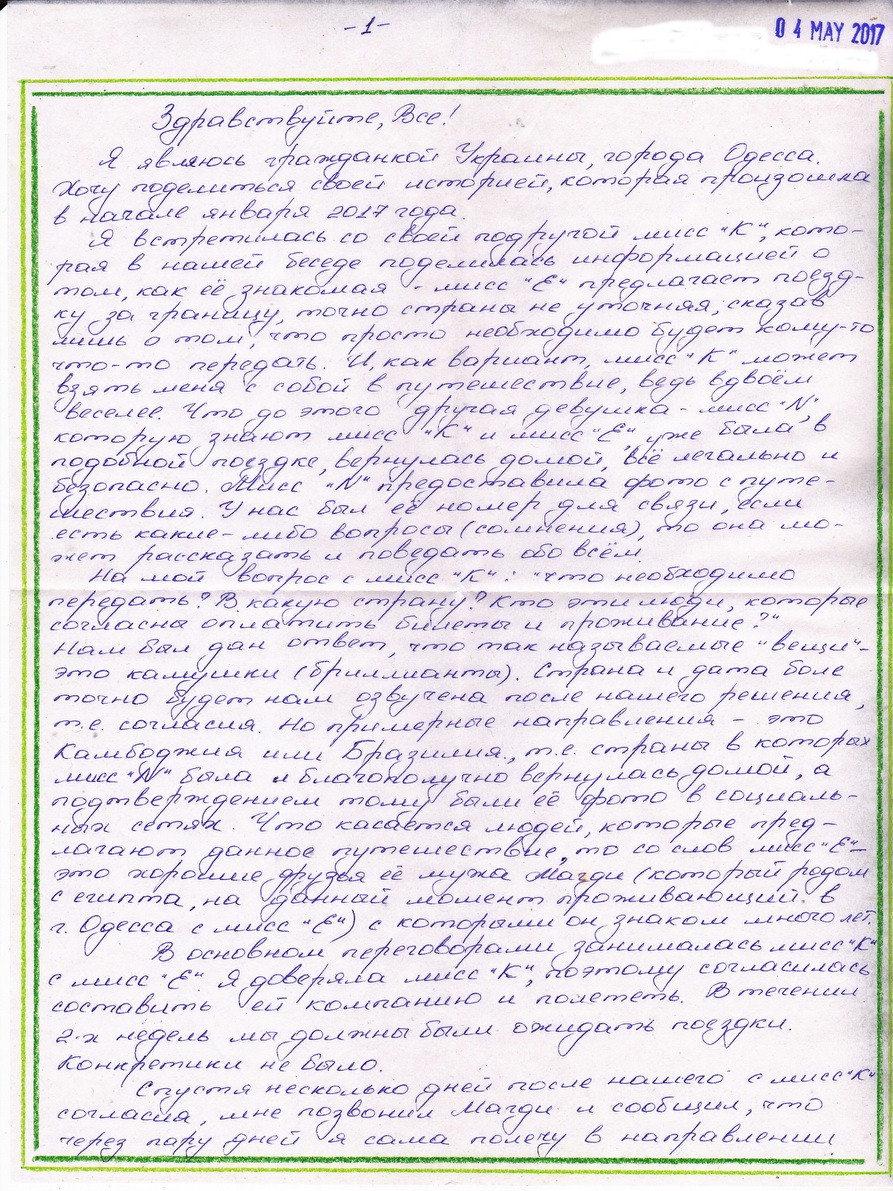 -1-
04 MAY 2017
Здравствуйте, Все!
Я являюсь гражданкой Украины, города Одесса.
Хочу поделиться своей историей, которая произошла
в начале января 2017 года.
Я встретилась со своей подругой мисс "К", кото-
рая в нашей беседе поделилась информацией о
том, как её знакомая - мисс "Е" предлагает поезд-
ку за границу, точно страны не уточняя, сказав
лишь о том, что просто необходимо будет кому-то
что-то передать. И, как вариант, мисс "К" может
взять меня с собой в путешествие, ведь вдвоём
веселее. Что до этого другая девушка - мисс "N",
которую знают мисс "К" и мисс "Е", уже была в
подобной поездке, вернулась домой, всё легально и
безопасно. Мисс "N" предоставила фото с путе-
шествия. У нас был её номер для связи, если
есть какие-либо вопросы (сомнения), то она мо-
жет рассказать и поведать обо всём.
На мой вопрос с мисс "К": "что необходимо
передать? В какую страну? Кто эти люди, которые
согласны оплатить билеты и проживание?"
Нам был дан ответ, что так называемые "вещи"-
это камушки (бриллианты). Страна и дата боле
точно будет нам озвучена после нашего решения,
т.е. согласия. Но примерные направления - это
Камбоджия или Бразилия., т.е. страны в которых
мисс "N" была и благополучно вернулась домой, а
подтверждением тому были её фото в социаль-
ных сетях. Что касается людей, которые пред-
лагают данное путешествие, то со слов мисс "Е"-
это хорошие друзья её мужа Магди (который родом
с египта, на данный момент проживающий в
г. Одесса с мисс "Е") с которыми он знаком много лет.
В основном переговорами занималась мисс "К"
с мисс "Е". Я доверяла мисс "К", поэтому согласилась
составить ей компанию и полететь. В течении
2-х недель мы должны были ожидать поездки.
Конкретики не было.
Спустя несколько дней после нашего с мисс "К"
согласия, мне позвонил Магди и сообщил, что
через пару дней я сама полечу в направлении